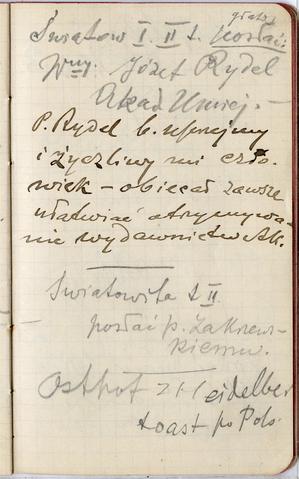 gratis
Światow. I. II t. posłać
Wny. Józef Rydel
Akad Umiej. –
P. Rydel b. uprzejmy
i życzliwy mi czło-
wiek – obiecał zawsze
ułatwiać otrzymywa-
nie wydawnictw Ak.
Światowita t II
posłać p. Zakrzew-
skiemu.
Osthof z Heidelber
toast po Pols.